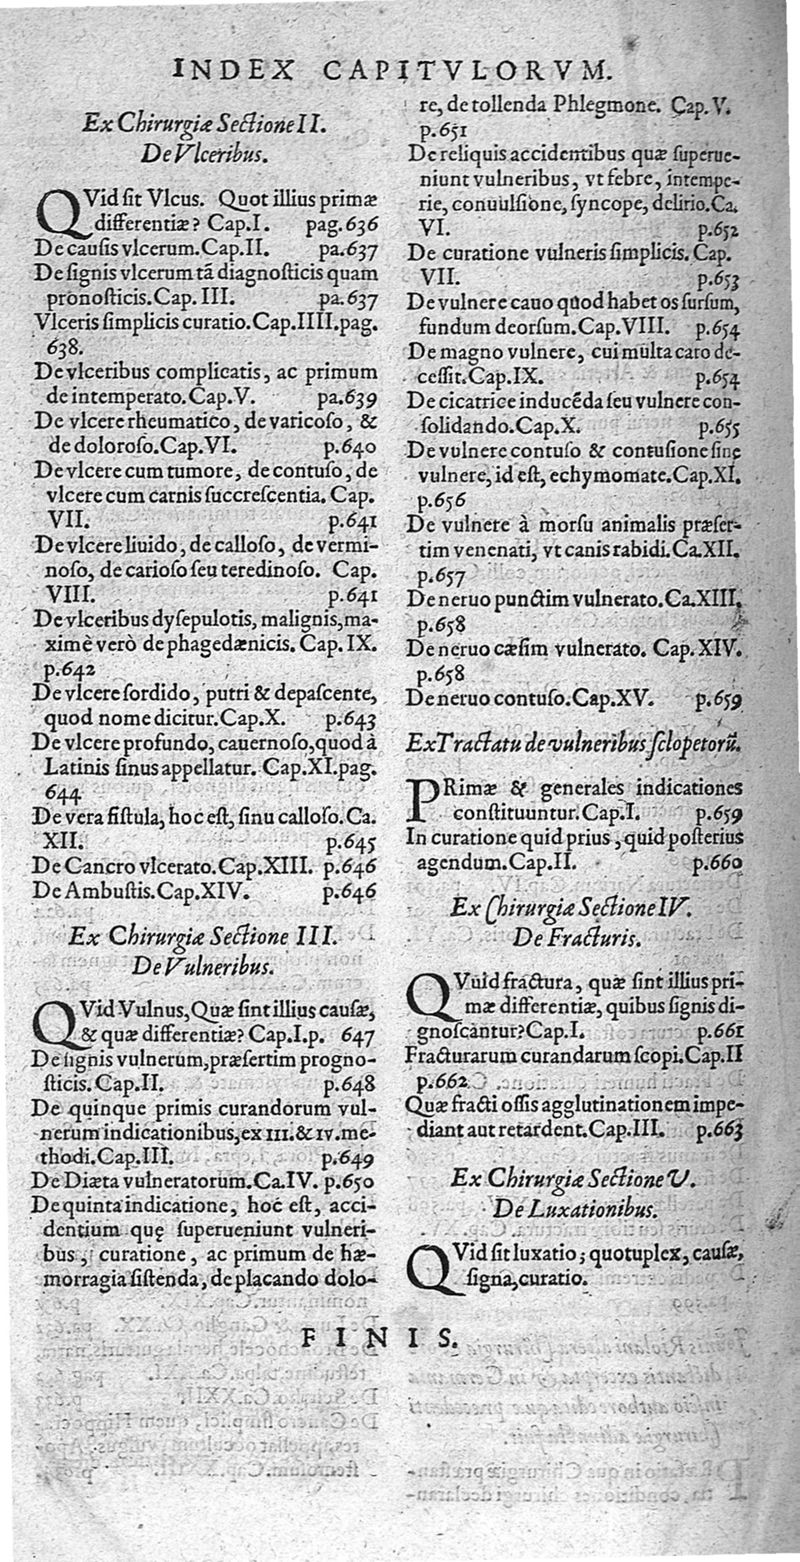 INDEX CAPITVLORVM.
Ex Chirurgiæ Sectione II.
De Vlceribus.
QVid sit Vlcus. Quot illius primæ
differentiæ? Cap.I. pag.636
De causis vlcerum.Cap.II. pa.637
De signis vlcerum tã diagnosticis quam
pronosticis.Cap. III. pa.637
Vlceris simplicis curatio.Cap.IIII.pag.
638.
De vlceribus complicatis, ac primum
de intemperato.Cap.V. pa.639
De vlcere rheumatico, de varicoso, &
de doloroso.Cap.VI. p.640
De vlcere cum tumore, de contuso, de
vlcere cum carnis succrescentia. Cap.
VII. p.641
De vlcere liuido, de calloso, de vermi-
noso, de carioso seu teredinoso. Cap.
VIII. p.641
De vlceribus dysepulotis, malignis,ma-
ximè verò de phagedænicis. Cap. IX.
p.642
De vlcere sordido, putri & depascente,
quod nome dicitur.Cap.X. p.643
De vlcere profundo, cauernoso,quod à
Latinis sinus appellatur. Cap.XI.pag.
644
De vera fistula, hoc est, sinu calloso.Ca.
XII. p.645
De Cancro vlcerato.Cap.XIII. p.646
De Ambustis.Cap.XIV. p.646
Ex Chirurgiæ Sectione III.
De Vulneribus.
QVid Vulnus,Quæ sint illius causæ,
& quæ differentiæ? Cap.I.p. 647
De signis vulnerum,præsertim progno-
sticis.Cap.II. p.648
De quinque primis curandorum vul-
nerum indicationibus,ex III.& IV.me-
thodi.Cap.III. p.649
De Diæta vulneratorum.Ca.IV. p.650
De quinta indicatione, hoc est, acci-
dentium quę superueniunt vulneri-
bus, curatione, ac primum de hæ-
morragia sistenda, de placando dolo-
re, de tollenda Phlegmone. Cap.V.
p.651
De reliquis accidentibus quæ superue-
niunt vulneribus, vt febre, intempe-
rie, conuulsione, syncope, delirio.Ca.
VI. p.652
De curatione vulneris simplicis. Cap.
VII. p.653
De vulnere cauo quod habet os sursum,
fundum deorsum.Cap.VIII. p.654
De magno vulnere, cui multa caro de-
cessit.Cap.IX. p.654
De cicatrice inducẽda seu vulnere con-
solidando.Cap.X. p.655
De vulnere contuso & contusione sine
vulnere, id est, echymomate.Cap.XI.
p.656
De vulnere à morsu animalis præser-
tim venenati, vt canis rabidi.Ca.XII.
p.657
De neruo punctim vulnerato.Ca.XIII.
p.658
De neruo cæsim vulnerato. Cap.XIV.
p.658
De neruo contuso.Cap.XV. p.659
Ex Tractatu de vulneribus sclopetorũ.
PRimæ & generales indicationes
constituuntur.Cap.I. p.659
In curatione quid prius, quid posterius
agendum.Cap.II. p.660
Ex Chirurgiæ Sectione IV.
De Fracturis.
QVuid fractura, quæ sint illius pri-
mæ differentiæ, quibus signis di-
gnoscantur?Cap.I. p.661
Fracturarum curandarum scopi.Cap.II
p.662
Quæ fracti ossis agglutinationem impe-
diant aut retardent.Cap.III. p.663
Ex Chirurgiæ Sectione V.
De Luxationibus.
QVid sit luxatio, quotuplex, causæ,
signa,curatio.
FINIS.